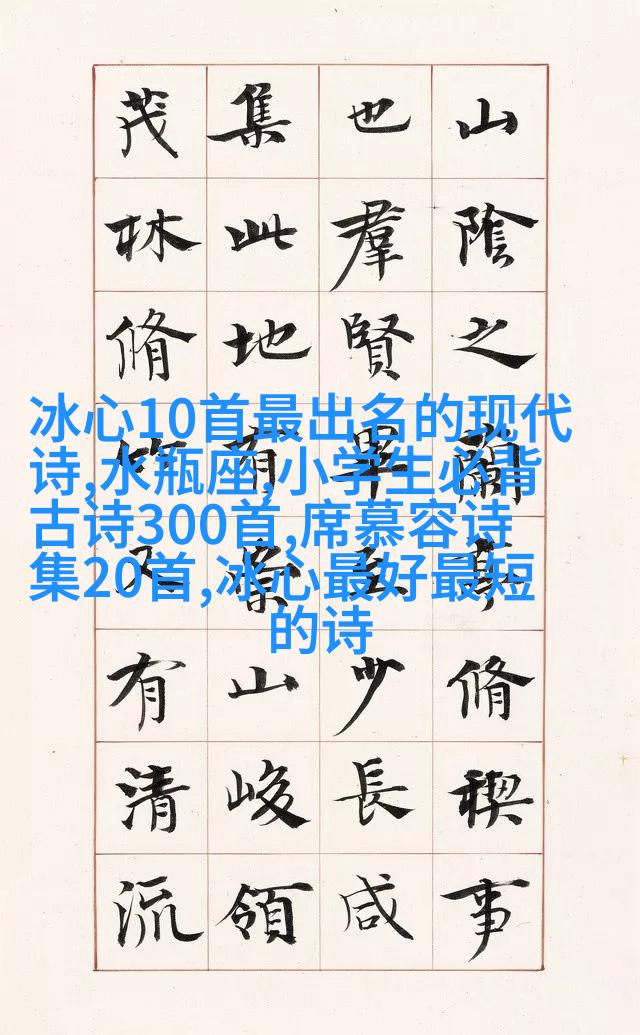 山陰之蘭亭脩稧事
也羣賢畢至少長咸
集此地有崇山峻領
茂林脩竹又有清流
冰心10首最出名的现代
诗,水瓶座,小学生必背
古诗300首,席慕容诗
集20首,冰心最好最短
的诗